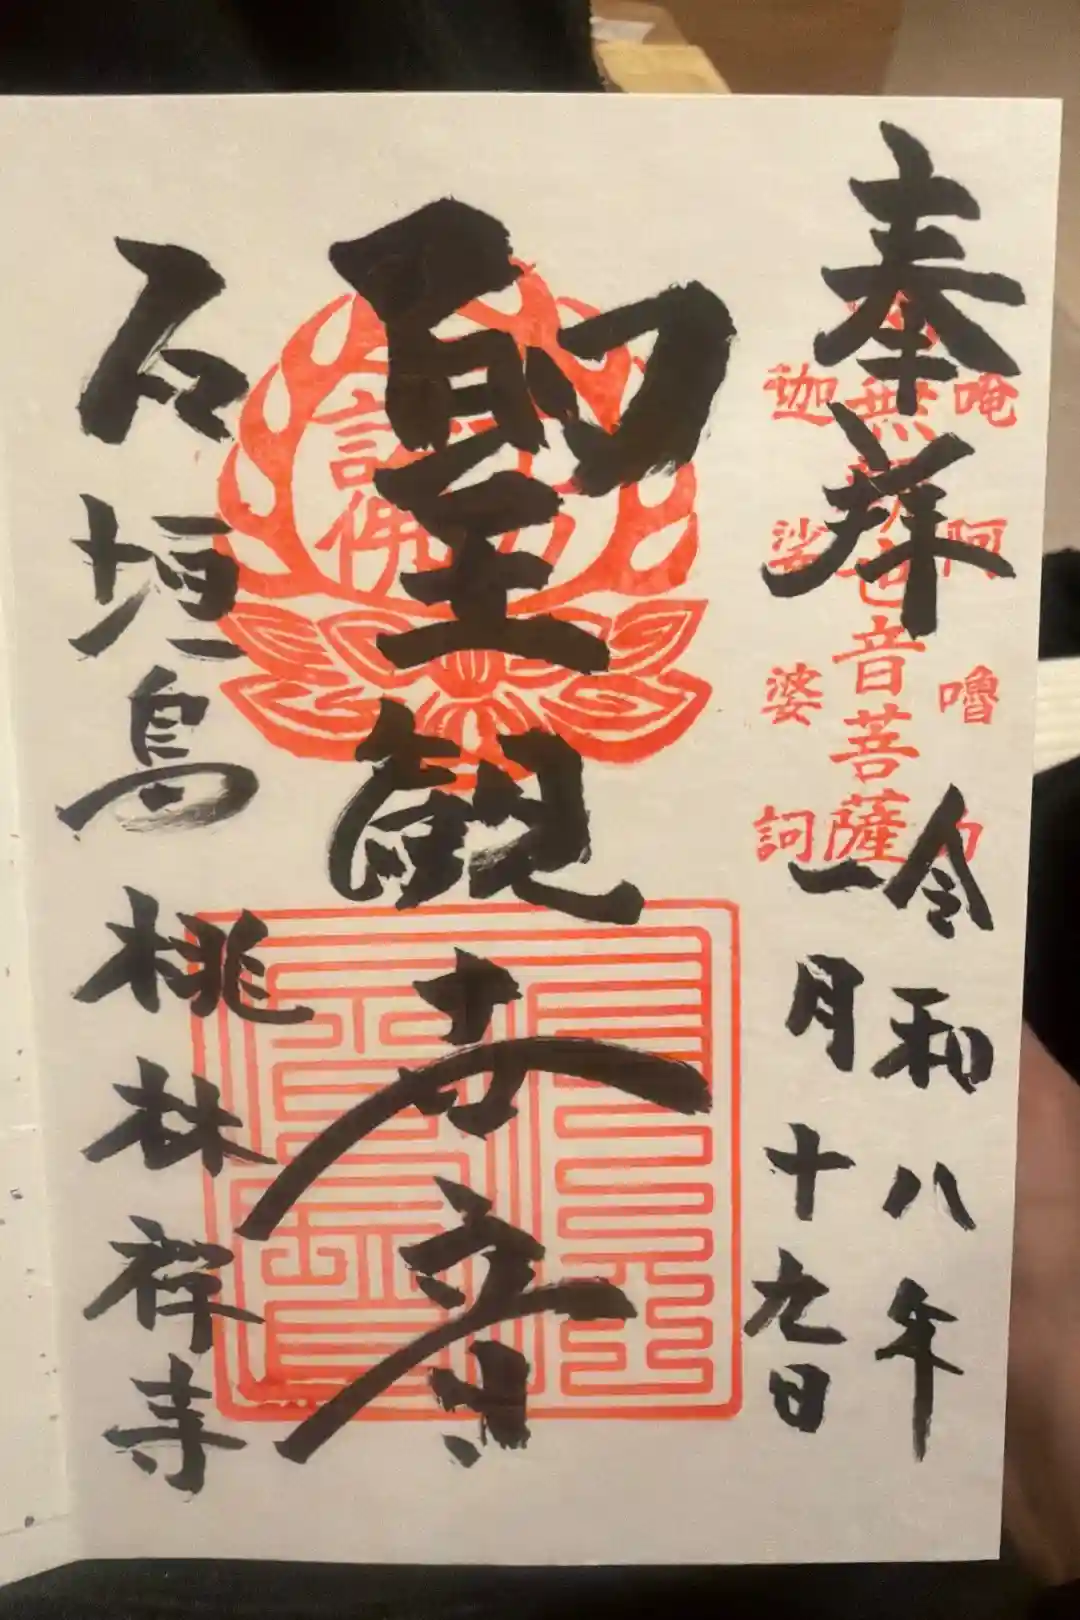 奉拝
唵 阿 嚕
無
音菩薩
迦 娑 婆 訶
令和八年
一月十九日
聖観世音
佛
石垣島 桃林禅寺